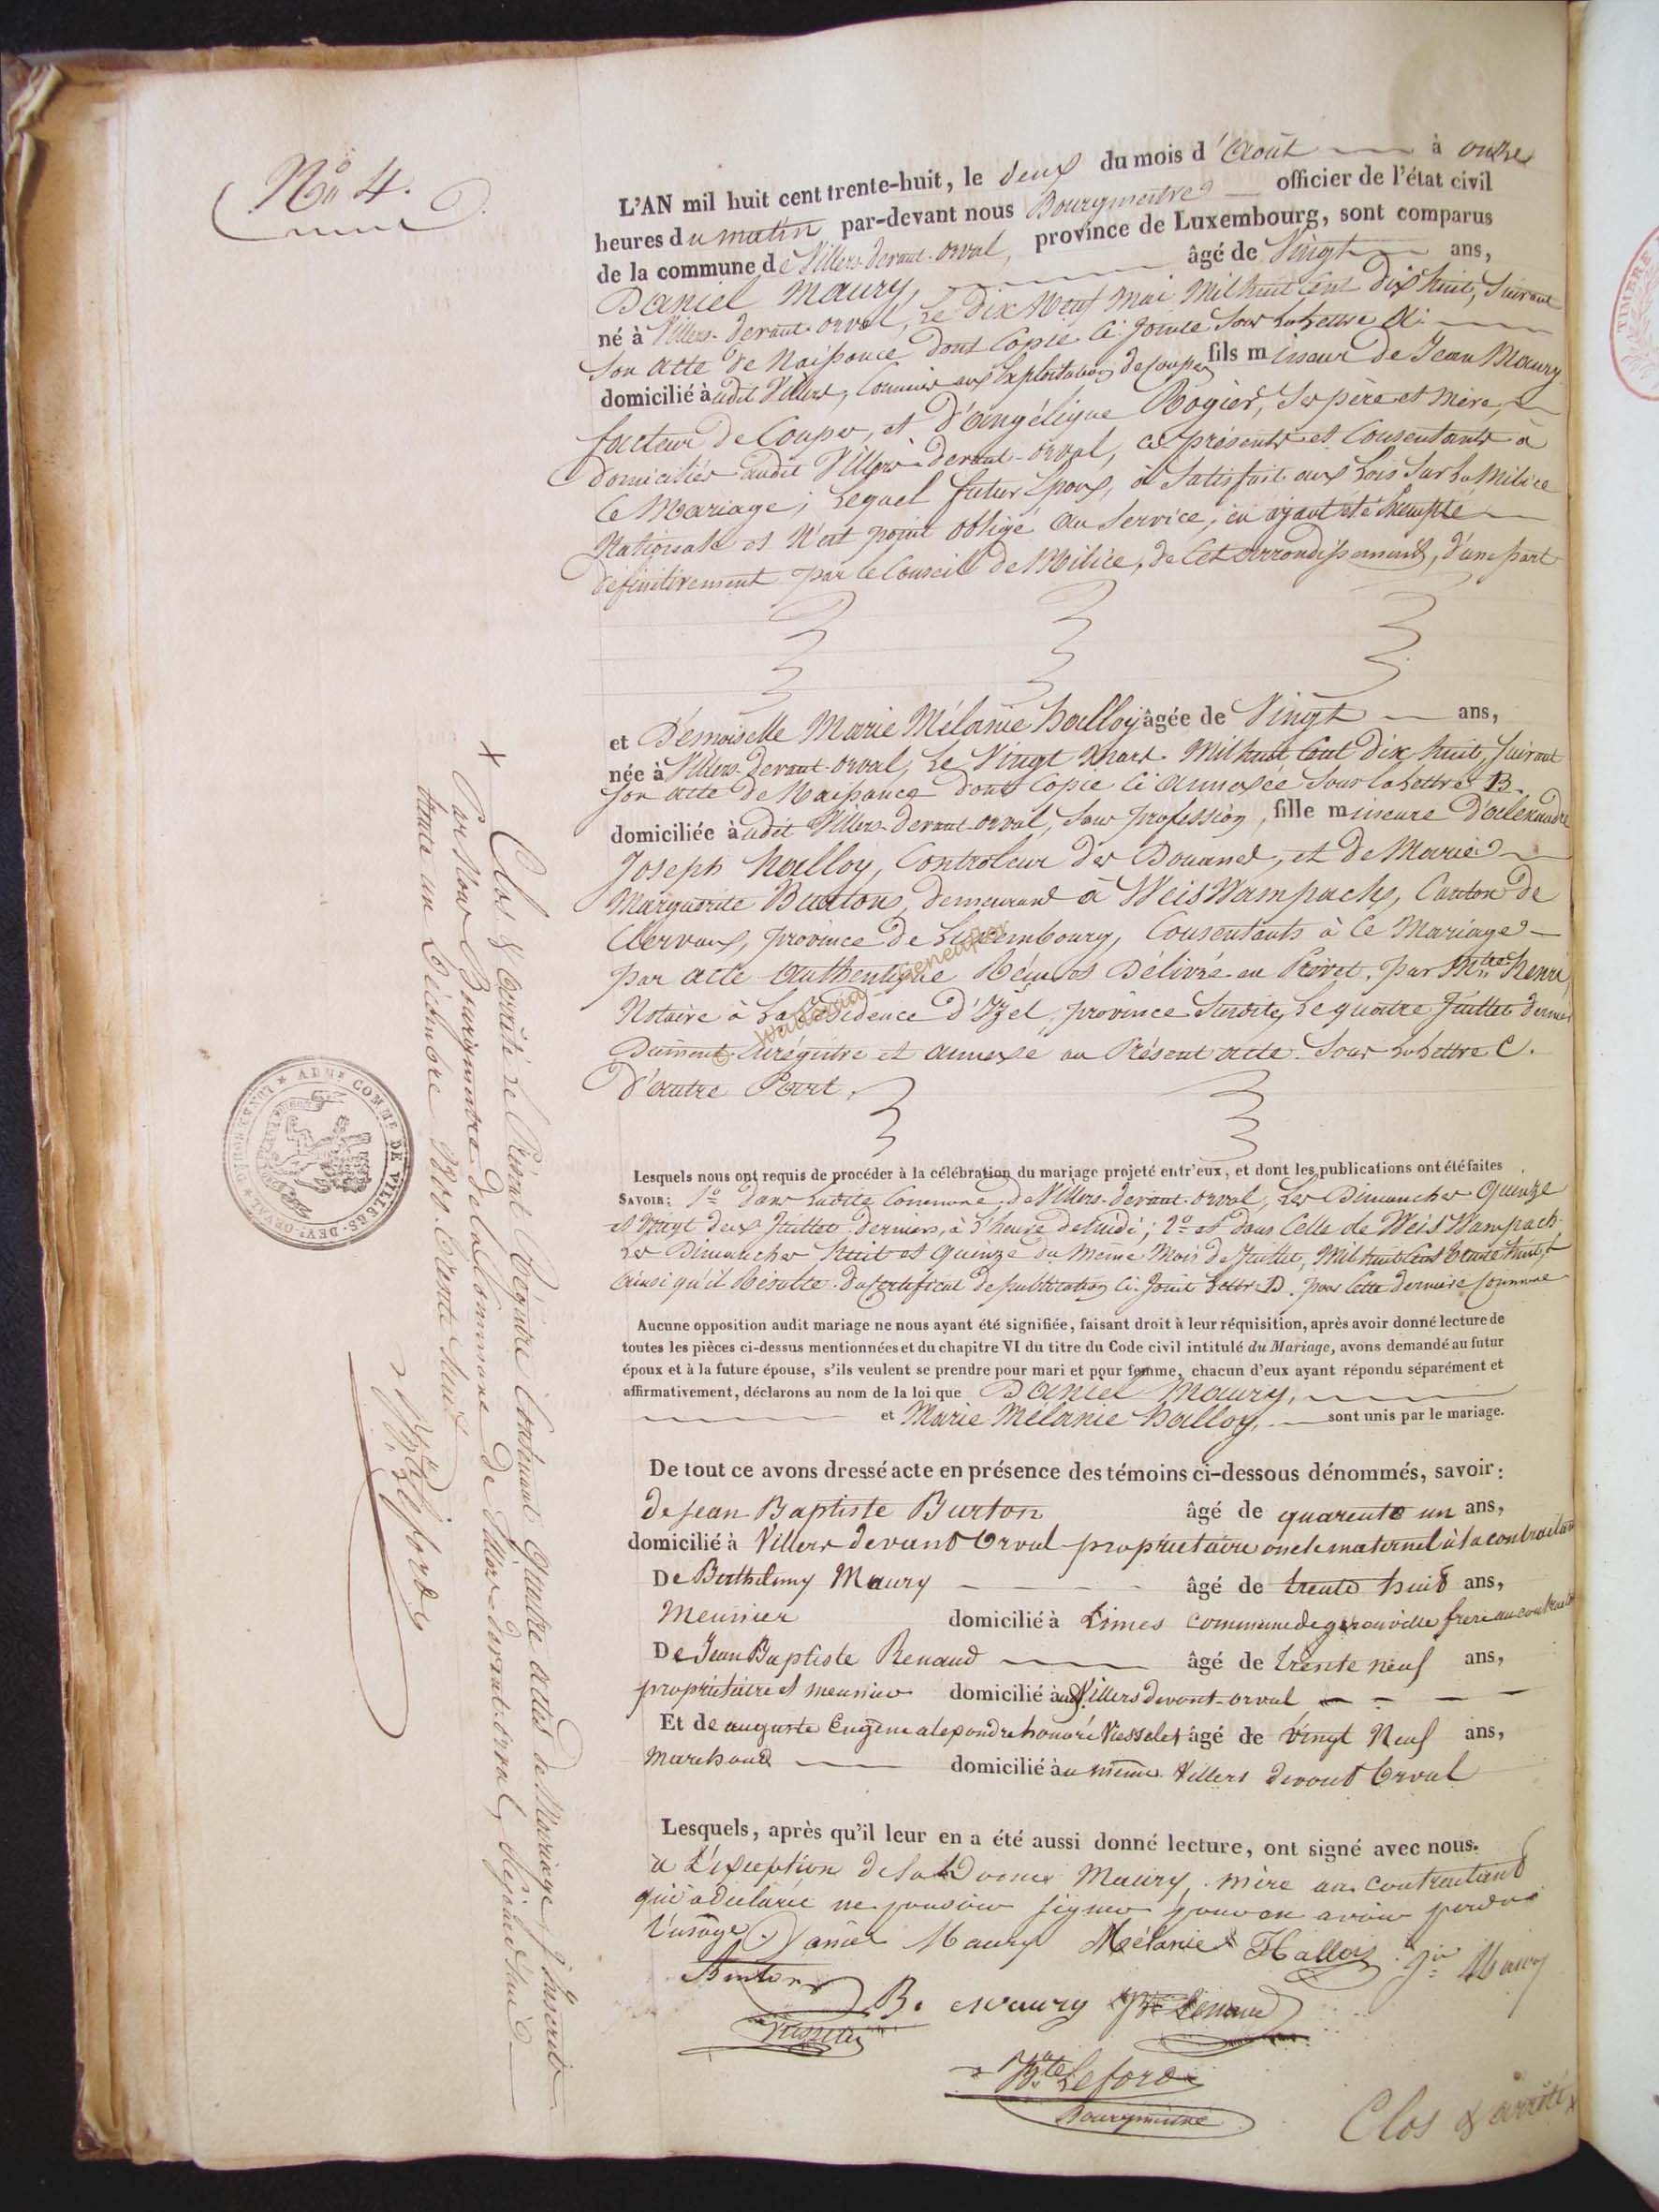 N° 4.
L'AN mil huit cent trente-huit, le deux du mois d'Août à onze
heures du matin par-devant nous Bourgmestre officier de l'état civil
de la commune de Villers-devant-orval, province de Luxembourg, sont comparus
Daniel Maury, âgé de Vingt ans,
né à Villers-devant-orval, Le Dix Neuf Mai Mil huit Cent Dix huit, Suivant
Son acte de Naissance dont Copie Ci-Jointe Sous La Lettre A.
domicilié audit Villers, Commis aux Exploitations de Coupes fils mineur de Jean Maury
facteur de Coupes, et d'angélique Rogier, Ses père et Mère,
Domiciliés audit Villers-devant-orval, ci présents et Consentants à
Ce Mariage; Lequel futur Epoux, a Satisfait aux Lois Sur La Milice
Nationale et N'est point obligé au Service, en ayant été Exempté
définitivement par le Conseil de Milice, de Cet arrondissement, d'une part
et Demoiselle Marie Mélanie halloy âgée de Vingt ans,
née à Villers-devant-orval, Le Vingt Mars Mil huit Cent Dix huit, Suivant
Son acte de Naissance dont Copie Ci annexée Sous La Lettre B.
domiciliée audit Villers-devant-orval, Sans profession, fille mineure D'alexandre
Joseph halloy, Controleur des Douanes, et de Marie
Marguerite Burton, demeurant à WeisWampach, Canton de
Clervaux, province de Luxembourg, Consentants à Ce Mariage
par acte authentique Reçu et Délivré en Brévet, par Mtre henri,
Notaire à La Résidence D'Izel, province Susdite, Le quatre Juillet dernier
Dument Enrégistré et annexé au Présent acte Sous La Lettre C.
D'autre Part.
Lesquels nous ont requis de procéder à la célébration du mariage projeté entr'eux, et dont les publications ont été faites
SAVOIR: 1° Dans Ladite Commune de Villers-devant-orval, Les Dimanches Quinze
et Vingt deux Juillet dernier, à l'heure de Midi; 2° et dans Celle de WeisWampach
Les Dimanches huit et quinze du même Mois de Juillet, Mil huit Cent trente huit,
Ainsi qu'il Résulte du Certificat de publication Ci-Joint Lettre D. par Cette dernière Commune
Aucune opposition audit mariage ne nous ayant été signifiée, faisant droit à leur réquisition, après avoir donné lecture de
toutes les pièces ci-dessus mentionnées et du chapitre VI du titre du Code civil intitulé du Mariage, avons demandé au futur
époux et à la future épouse, s'ils veulent se prendre pour mari et pour femme, chacun d'eux ayant répondu séparément et
affirmativement, déclarons au nom de la loi que Daniel Maury,
et Marie Mélanie halloy, sont unis par le mariage.
De tout ce avons dressé acte en présence des témoins ci-dessous dénommés, savoir:
de jean Baptiste Burton âgé de quarente un ans,
domicilié à Villers devant Orval propriétaire oncle maternel à la contractante
De Barthelemy Maury âgé de trente huit ans,
Meunier domicilié à Limes commune de gerouville frere au contractant
De Jean Baptiste Renaud âgé de trente neuf ans,
propriétaire et meunier domicilié audt Villers devant-orval
Et de auguste Eugène alexandre honoré Nesselet âgé de vingt Neuf ans,
Marchand domicilié au même Villers devant Orval
Lesquels, après qu'il leur en a été aussi donné lecture, ont signé avec nous.
a L'exception de la Dame Maury mère au contractant
qui a declarée ne pouvoir signer pour en avoir perdu
l'usage. Daniel Maury Mélanie Halloy Jn Maury
Burton
B. Maury JBte Renaud
JBte Leforde
Bourgmestre
Clos & arrêté
X Clos & arrêté le Présent Régistre Contenant quatre actes de Mariage, Inscrits
Par Nous Bourgmestre de la Commune de Villers-devant-orval, Cejourd'hui
trente un Décembre 1800 trente huit
JBte Leforde
ADMON COMMLE DE VILLERS-DEVT-ORVAL
© Wallonia Geneafter
TIMBRE